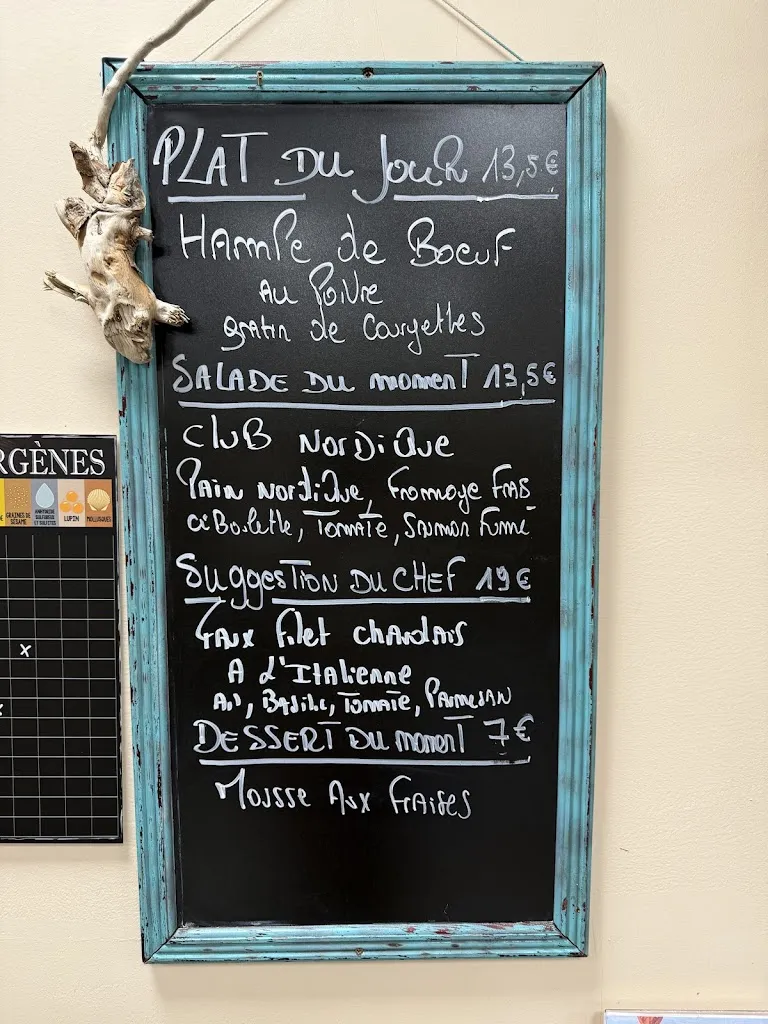 PLAT DU JOUR 13,5€
HAMPE de BOEUF
AU POIVRE
gratin de Courgettes
SALADE DU moment 13,5€
CLUB NORDIQUE
PAIN NORDIQUE, FROMAGE FRAIS
CIBOULETTE, TOMATE, SAUMON Fumé
SUGGESTION DU CHEF 19€
FAUX FILET CHAROLAIS
A L'ITALIENNE
AIL, BASILIC, TOMATE, PARMESAN
DESSERT DU moment 7€
MOUSSE AUX FRAISES
RGÈNES
GRAINES DE SÉSAME
ANHYDRIDE SULFUREUX ET SULFITES
LUPIN
MOLLUSQUES
x